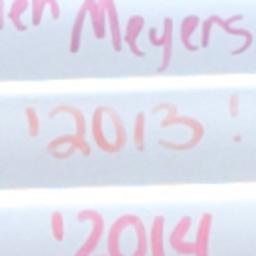 Meyers
'2013!
'2014